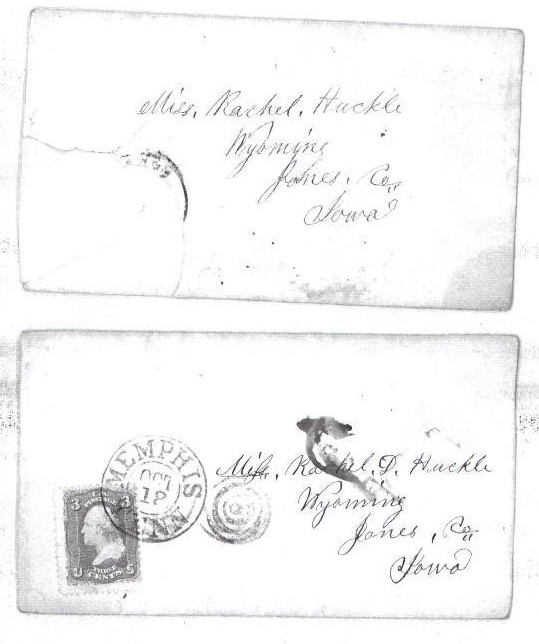 Miss, Rachel, Huckle
Wyoming
Jones, Co,,
Iowa
MEMPHIS
OCT
12
TEN.
Miss, Rachel, D. Huckle
Wyoming
Jones, Co,,
Iowa
3 3
THREE
CENTS
U S